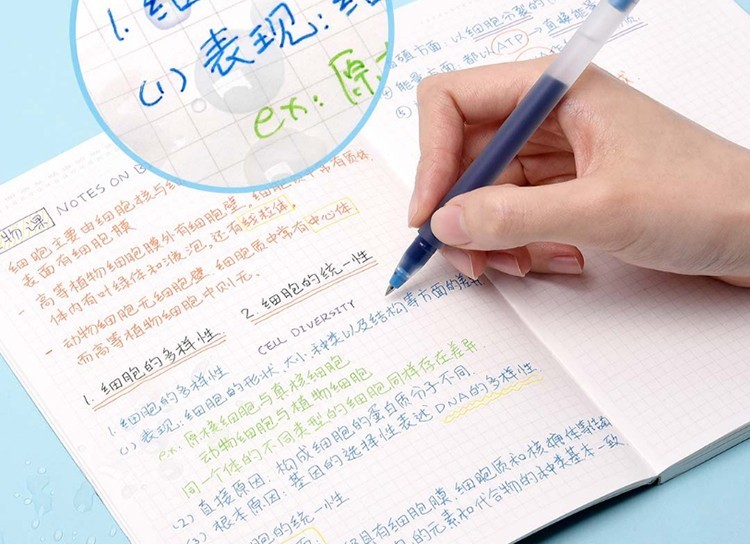 1.
(1) 表现:
ex: 原
以细胞分裂的
能量方面: 都以ATP
直接能
物课 NOTES ON
细胞主要由细胞核与
表面有细胞膜
- 高等植物细胞膜外有细胞壁, 细胞质中有质体,
体内有叶绿体和液泡, 还有线粒体.
- 动物细胞无细胞壁, 细胞质中常有中心体
而高等植物细胞中则无.
1. 细胞的多样性 2. 细胞的统一性
CELL DIVERSITY
1. 细胞的多样性
(1) 表现: 细胞的形状、大小、种类以及结构等方面的差异
ex: 原核细胞与真核细胞
动物细胞与植物细胞
同一个体的不同类型的细胞同样存在差异
(2) 直接原因: 构成细胞的蛋白质分子不同.
(3) 根本原因: 基因的选择性表述 DNA的多样性
胞的统一性
具有细胞膜, 细胞质和核糖体等结构
的元素和化合物的种类基本一致